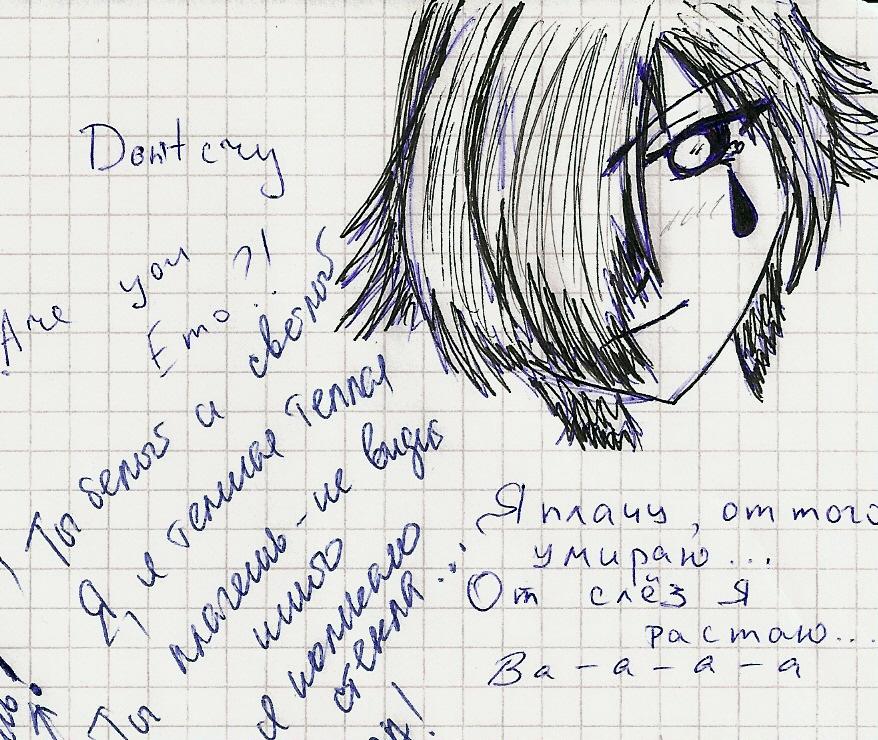 Dont cry
Are you
Emo?!
Ты белый и светлый
Я, я темная теплая
Ты плачешь - не видит
никто
я
стекла...
Я плачу, от того
умираю...
От слёз я
растаю...
Ва-а-а-а